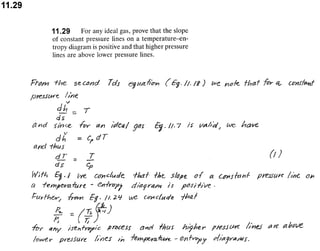 11.29
11.29 For any ideal gas, prove that the slope
of constant pressure lines on a temperature-en-
tropy diagram is positive and that higher pressure
lines are above lower pressure lines.
From the second Tds equation (Eq. 11.18) we note that for a constant
pressure line
dȟ/ds = T
and since for an ideal gas Eq. 11.7 is valid, we have
dȟ = Cp dT
and thus
dT/ds = T/Cp (1)
With Eq. 1 we conclude that the slope of a constant pressure line on
a temperature - entropy diagram is positive.
Further, from Eq. 11.24 we conclude that
P₂/P₁ = (T₂/T₁)^(k/k-1)
for any isentropic process and thus higher pressure lines are above
lower pressure lines in temperature - entropy diagrams.